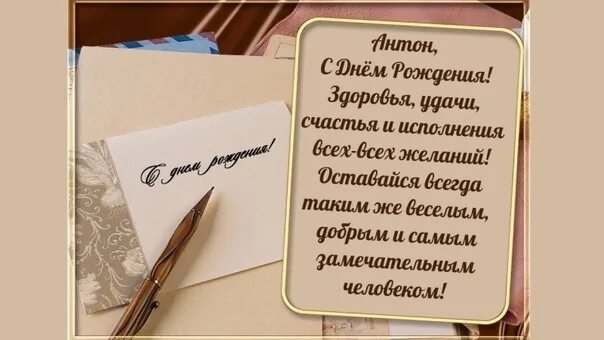 С днем рождения!
Антон,
С Днём Рождения!
Здоровья, удачи,
счастья и исполнения
всех-всех желаний!
Оставайся всегда
таким же веселым,
добрым и самым
замечательным
человеком!